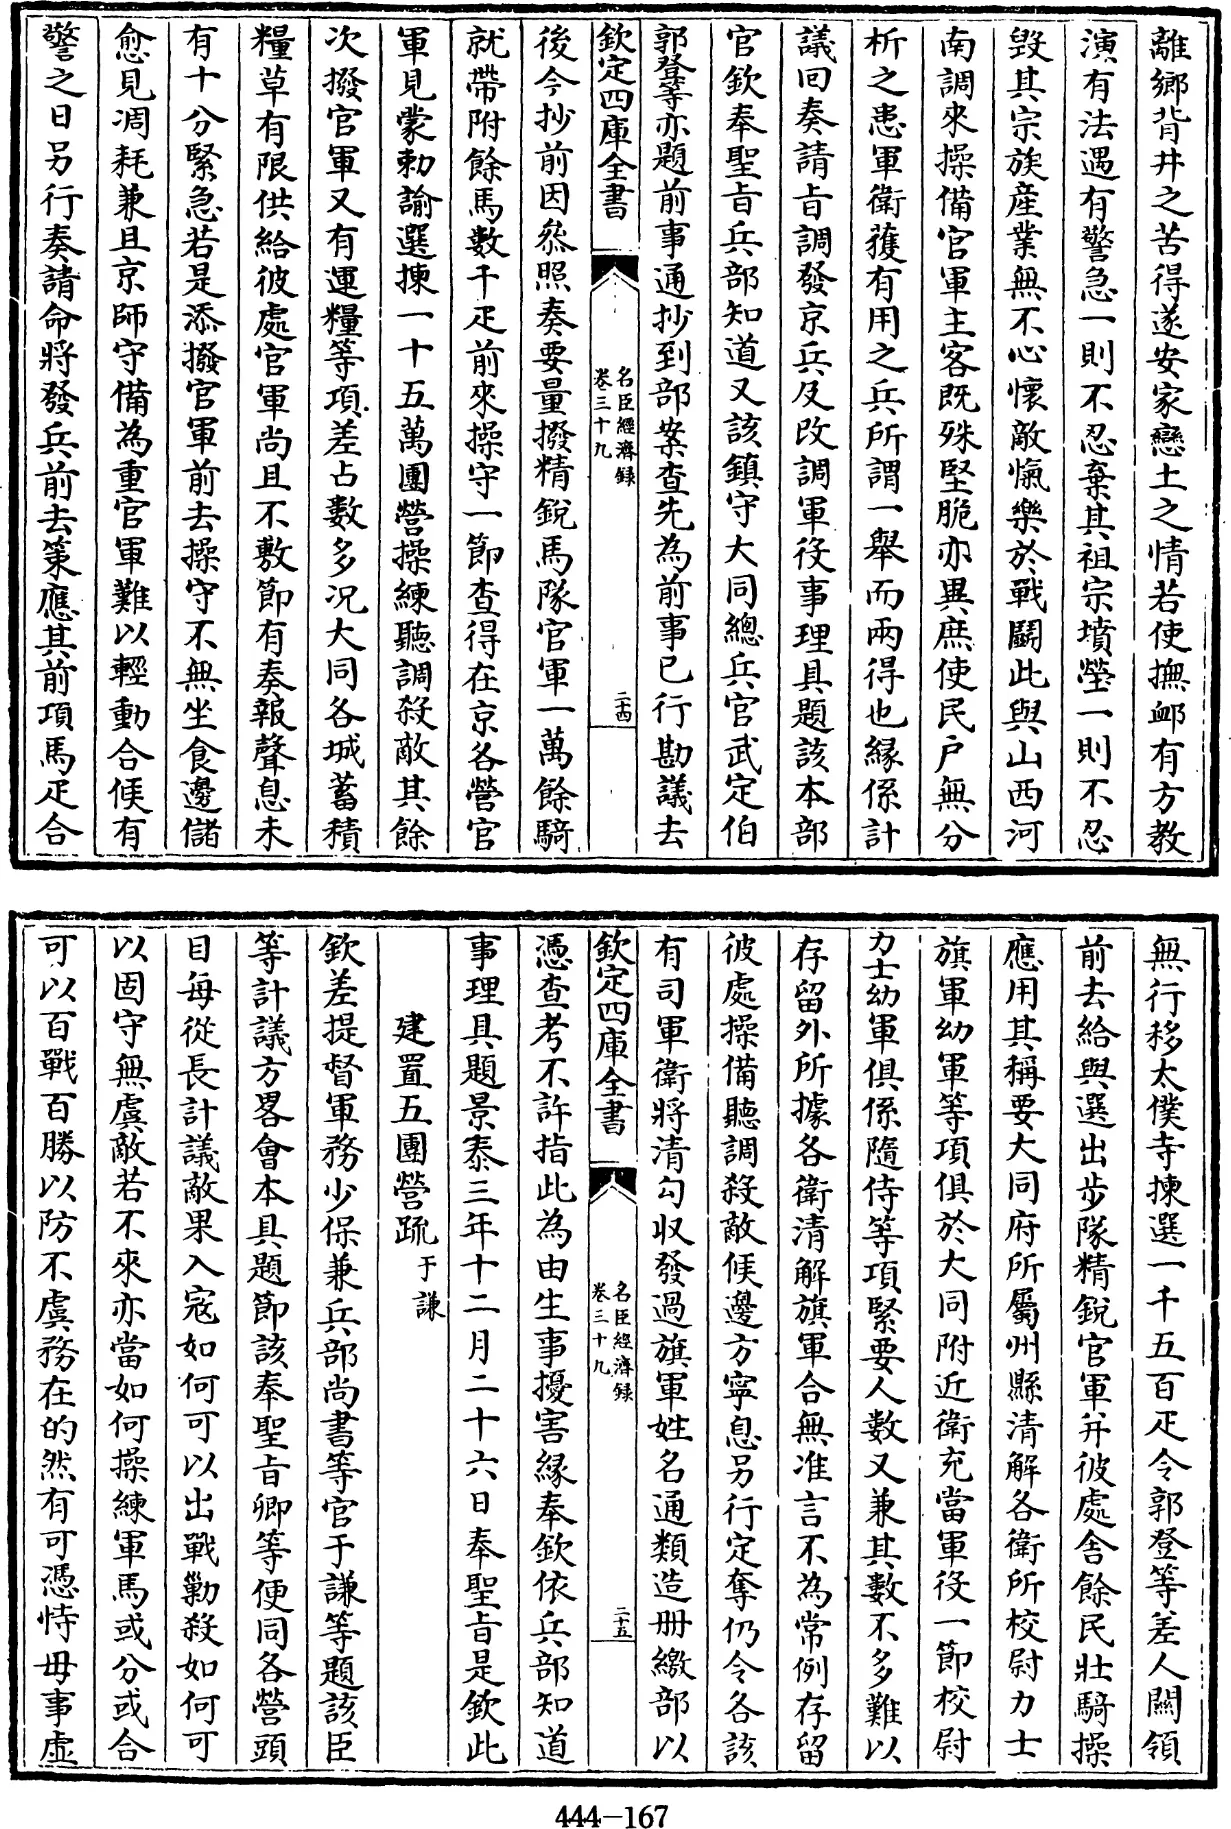 離鄉背井之苦得遂安家戀土之情若使撫䘏有方教
演有法遇有警急一則不忍棄其祖宗墳塋一則不忍
毁其宗族產業無不心懷敵愾樂於戰鬪此與山西河
南調來操備官軍主客既殊堅脆亦異庶使民户無分
析之患軍衛獲有用之兵所謂一舉而兩得也縁係計
議回奏請㫖調發京兵及改調軍役事理具題該本部
官欽奉聖㫖兵部知道又該鎮守大同總兵官武定伯
郭登等亦題前事通抄到部案查先為前事已行勘議去
欽定四庫全書
名臣經濟録
卷三十九
二十四
後今抄前因叅照奏要量撥精鋭馬隊官軍一萬餘騎
就帶附餘馬數千疋前來操守一節查得在京各營官
軍見蒙勅諭選揀一十五萬團營操練聽調殺敵其餘
次撥官軍又有運糧等項差占數多况大同各城蓄積
糧草有限供給彼處官軍尚且不敷節有奏報聲息未
有十分緊急若是添撥官軍前去操守不無坐食邊儲
愈見凋耗兼且京師守備為重官軍難以輕動合候有
警之日另行奏請命將發兵前去策應其前項馬疋合
無行移太僕寺揀選一千五百疋令郭登等差人關領
前去給與選出步隊精鋭官軍并彼處舍餘民壯騎操
應用其稱要大同府所屬州縣清解各衛所校尉力士
旗軍幼軍等項俱於大同附近衛充當軍役一節校尉
力士幼軍俱係隨侍等項緊要人數又兼其數不多難以
存留外所據各衛清解旗軍合無准言不為常例存留
彼處操備聽調殺敵候邊方寧息另行定奪仍令各該
有司軍衛將清勾收發過旗軍姓名通類造册繳部以
欽定四庫全書
名臣經濟録
卷三十九
二十五
憑查考不許指此為由生事擾害縁奉欽依兵部知道
事理具題景泰三年十二月二十六日奉聖㫖是欽此
建置五團營疏 于謙
欽差提督軍務少保兼兵部尚書等官于謙等題該臣
等計議方畧會本具題節該奉聖㫖卿等便同各營頭
目每從長計議敵果入寇如何可以出戰勦殺如何可
以固守無虞敵若不來亦當如何操練軍馬或分或合
可以百戰百勝以防不虞務在的然有可憑恃毋事虛
444-167